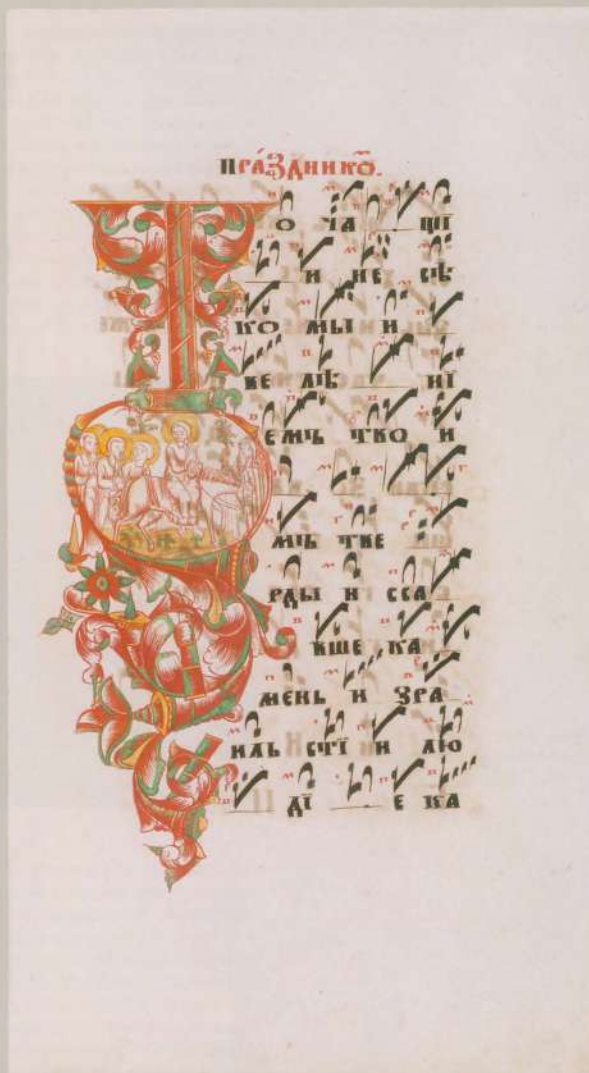 Пра́здникѡ.
Т о ча щї
и не сѣ
ко мы и
ве лѣ нї
емъ тво и
мъ тве
рды и сса
вше ка
мень и зра
иль стї и лю
дї е ка